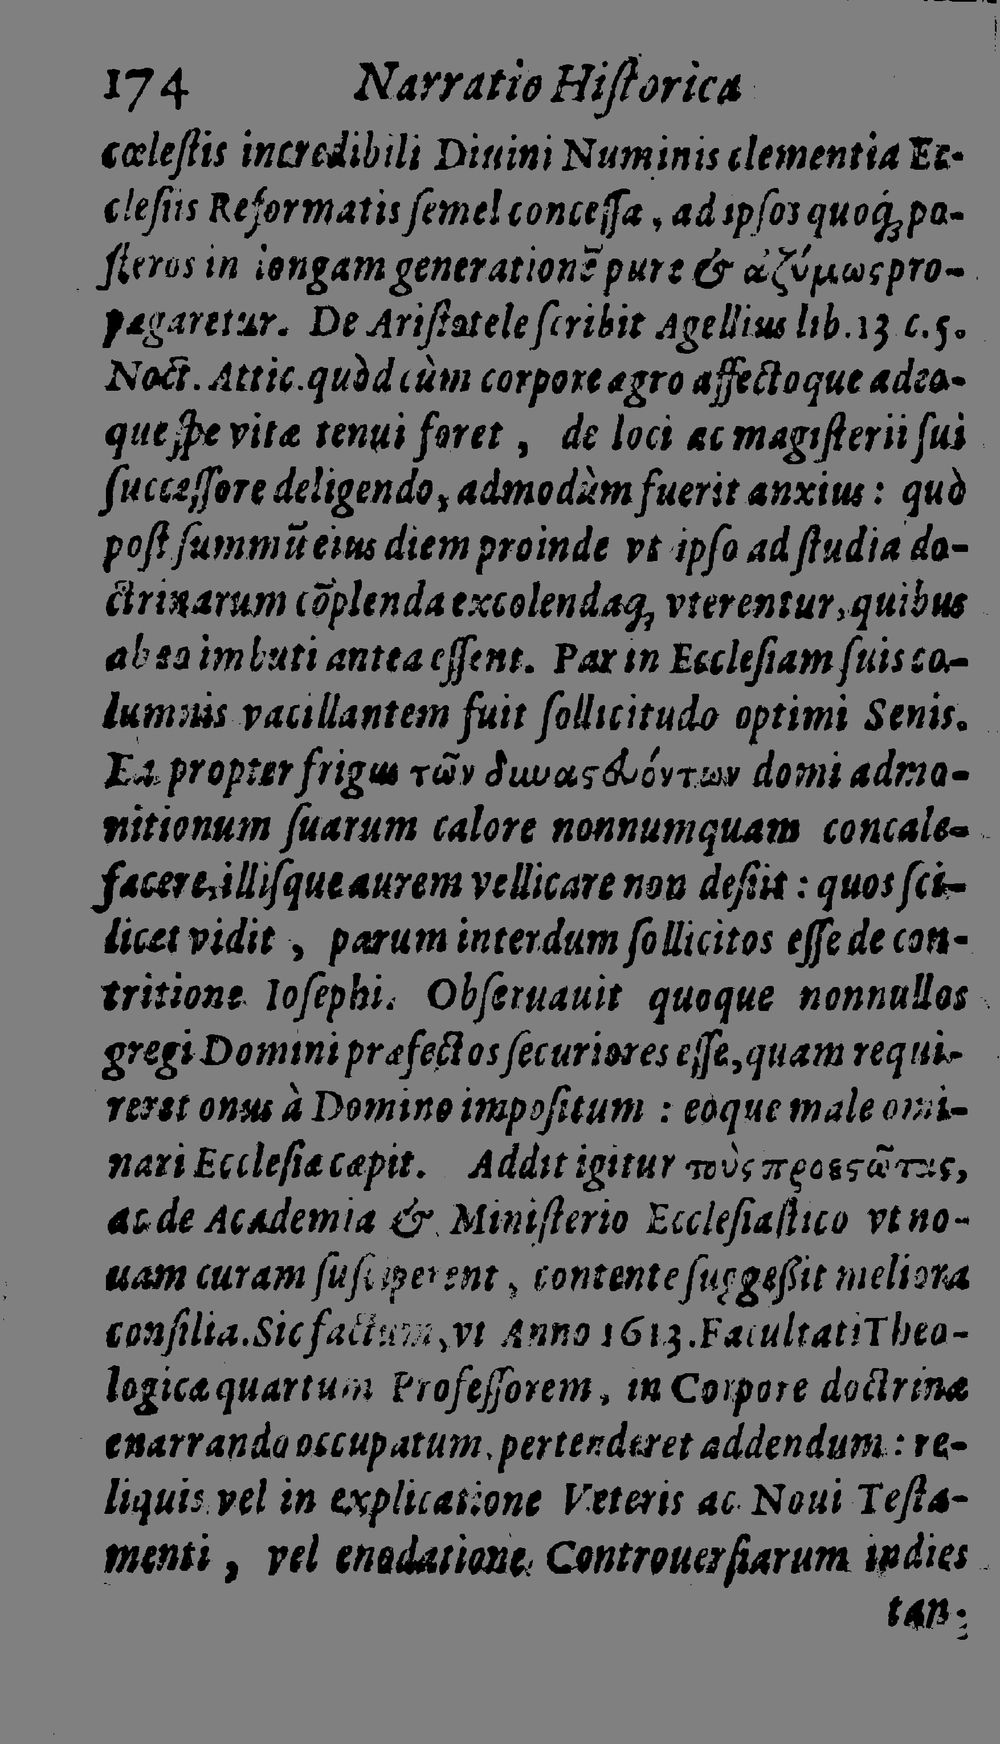 174 Narratio Hiſtorica
cœleſtis incredibili Diuini Numinis clementia Ec-
cleſiis Reformatis ſemel conceſſa, ad ipſos quoq́; po-
ſteros in longam generationẽ pure & ἀζύμως pro-
pagaretur. De Ariſtotele ſcribit Agellius lib. 13 c. 5.
Noct. Attic. quòd cùm corpore ægro affectoque adeo-
que ſpe vitæ tenui foret, de loci ac magiſterii ſui
ſucceſſore deligendo, admodùm fuerit anxius: quò
poſt ſummũ eius diem proinde vt ipſo ad ſtudia do-
ctrinarum cõplenda excolendaq; vterentur, quibus
ab eo imbuti antea eſſent. Par in Eccleſiam ſuis co-
lumnis vacillantem fuit ſollicitudo optimi Senis.
Ea propter frigus τῶν δυναςευόντων domi admo-
nitionum ſuarum calore nonnumquam concale-
facere, illiſque aurem vellicare non deſiit: quos ſci-
licet vidit, parum interdum ſollicitos eſſe de con-
tritione Ioſephi. Obſeruauit quoque nonnullos
gregi Domini præfectos ſecuriores eſſe, quam requi-
reret onus à Domino impoſitum: eoque male omi-
nari Eccleſiæ cœpit. Addit igitur τοὺς προεςῶτας,
ac de Academia & Miniſterio Eccleſiaſtico vt no-
uam curam ſuſciperent, contente ſuggeßit meliora
conſilia. Sic factum, vt Anno 1613. Facultati Theo-
logicæ quartum Profeſſorem, in Corpore doctrinæ
enarrando occupatum, pertenderet addendum: re-
liquis vel in explicatione Veteris ac Noui Teſta-
menti, vel enodatione Controuerſiarum indies
tan-